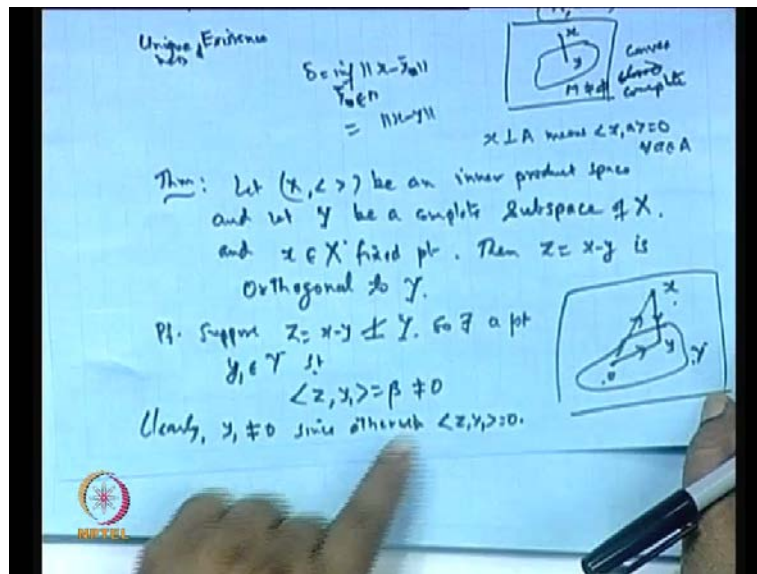 Uniqueness & Existence
δ = inf ||x - ỹ||
ỹ ∈ M
= ||x-y||
x
y
M ≠ φ
Convex
complete
x ⊥ A means <x,a> = 0
∀ a ∈ A
Thm: Let (X, < >) be an inner product space
and let Y be a complete Subspace of X.
and x ∈ X fixed pt. Then z = x-y is
Orthogonal to Y.
Pf. Suppose z = x-y ⊥̸ Y. So ∃ a pt
y₁ ∈ Y st
<z, y₁> = β ≠ 0
Clearly, y₁ ≠ 0 since otherwise <z, y₁> = 0.
x
y
Y
0
NPTEL